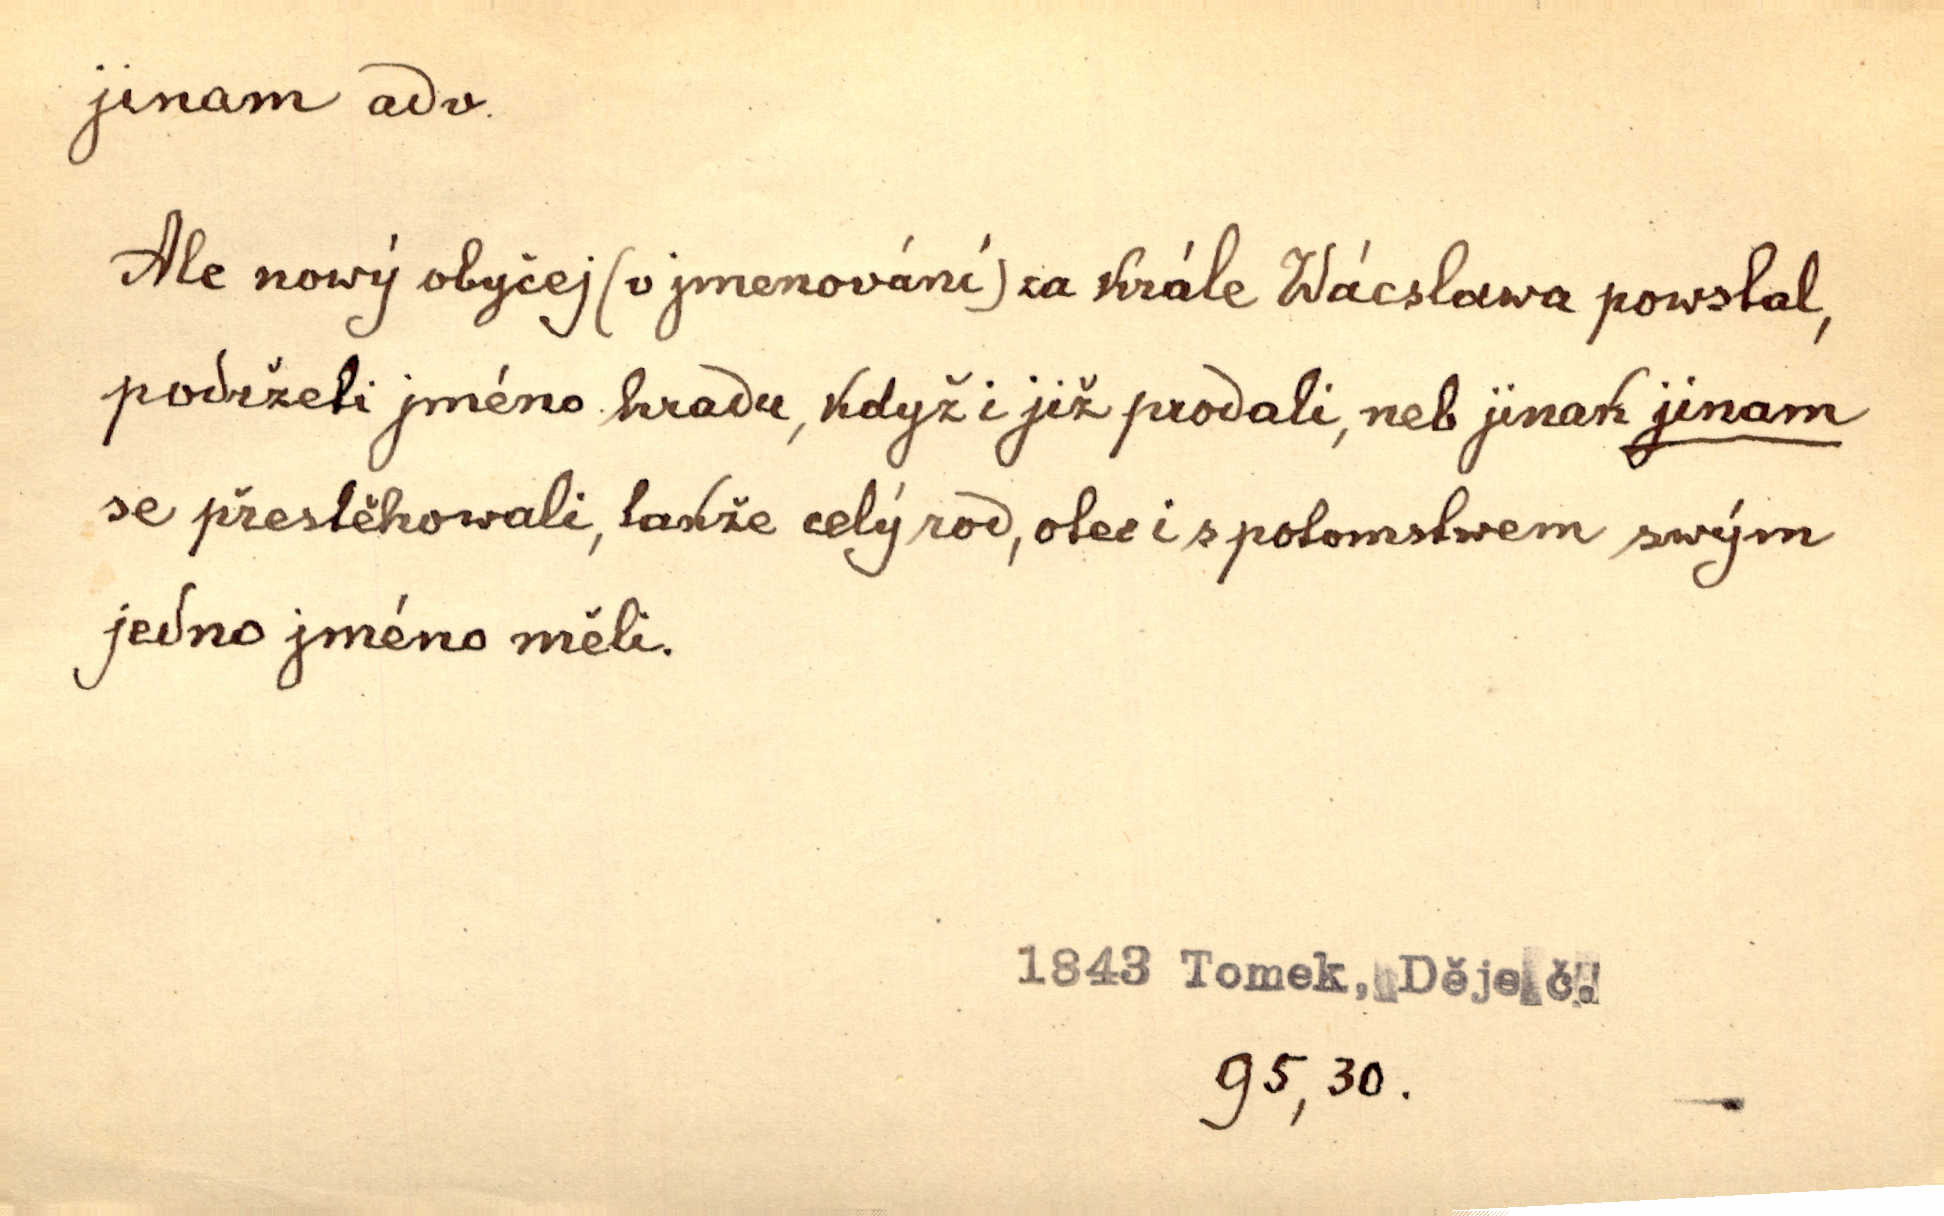 jinam adv.
Ale nowý obyčej (v jmenování) za krále Wácslawa powstal,
podrželi jméno hradu, když i již prodali, neb jinak jinam
se přestěhowali, takže celý rod, otec i s potomstwem swým
jedno jméno měli.
1843 Tomek, Děje č.
95,30.